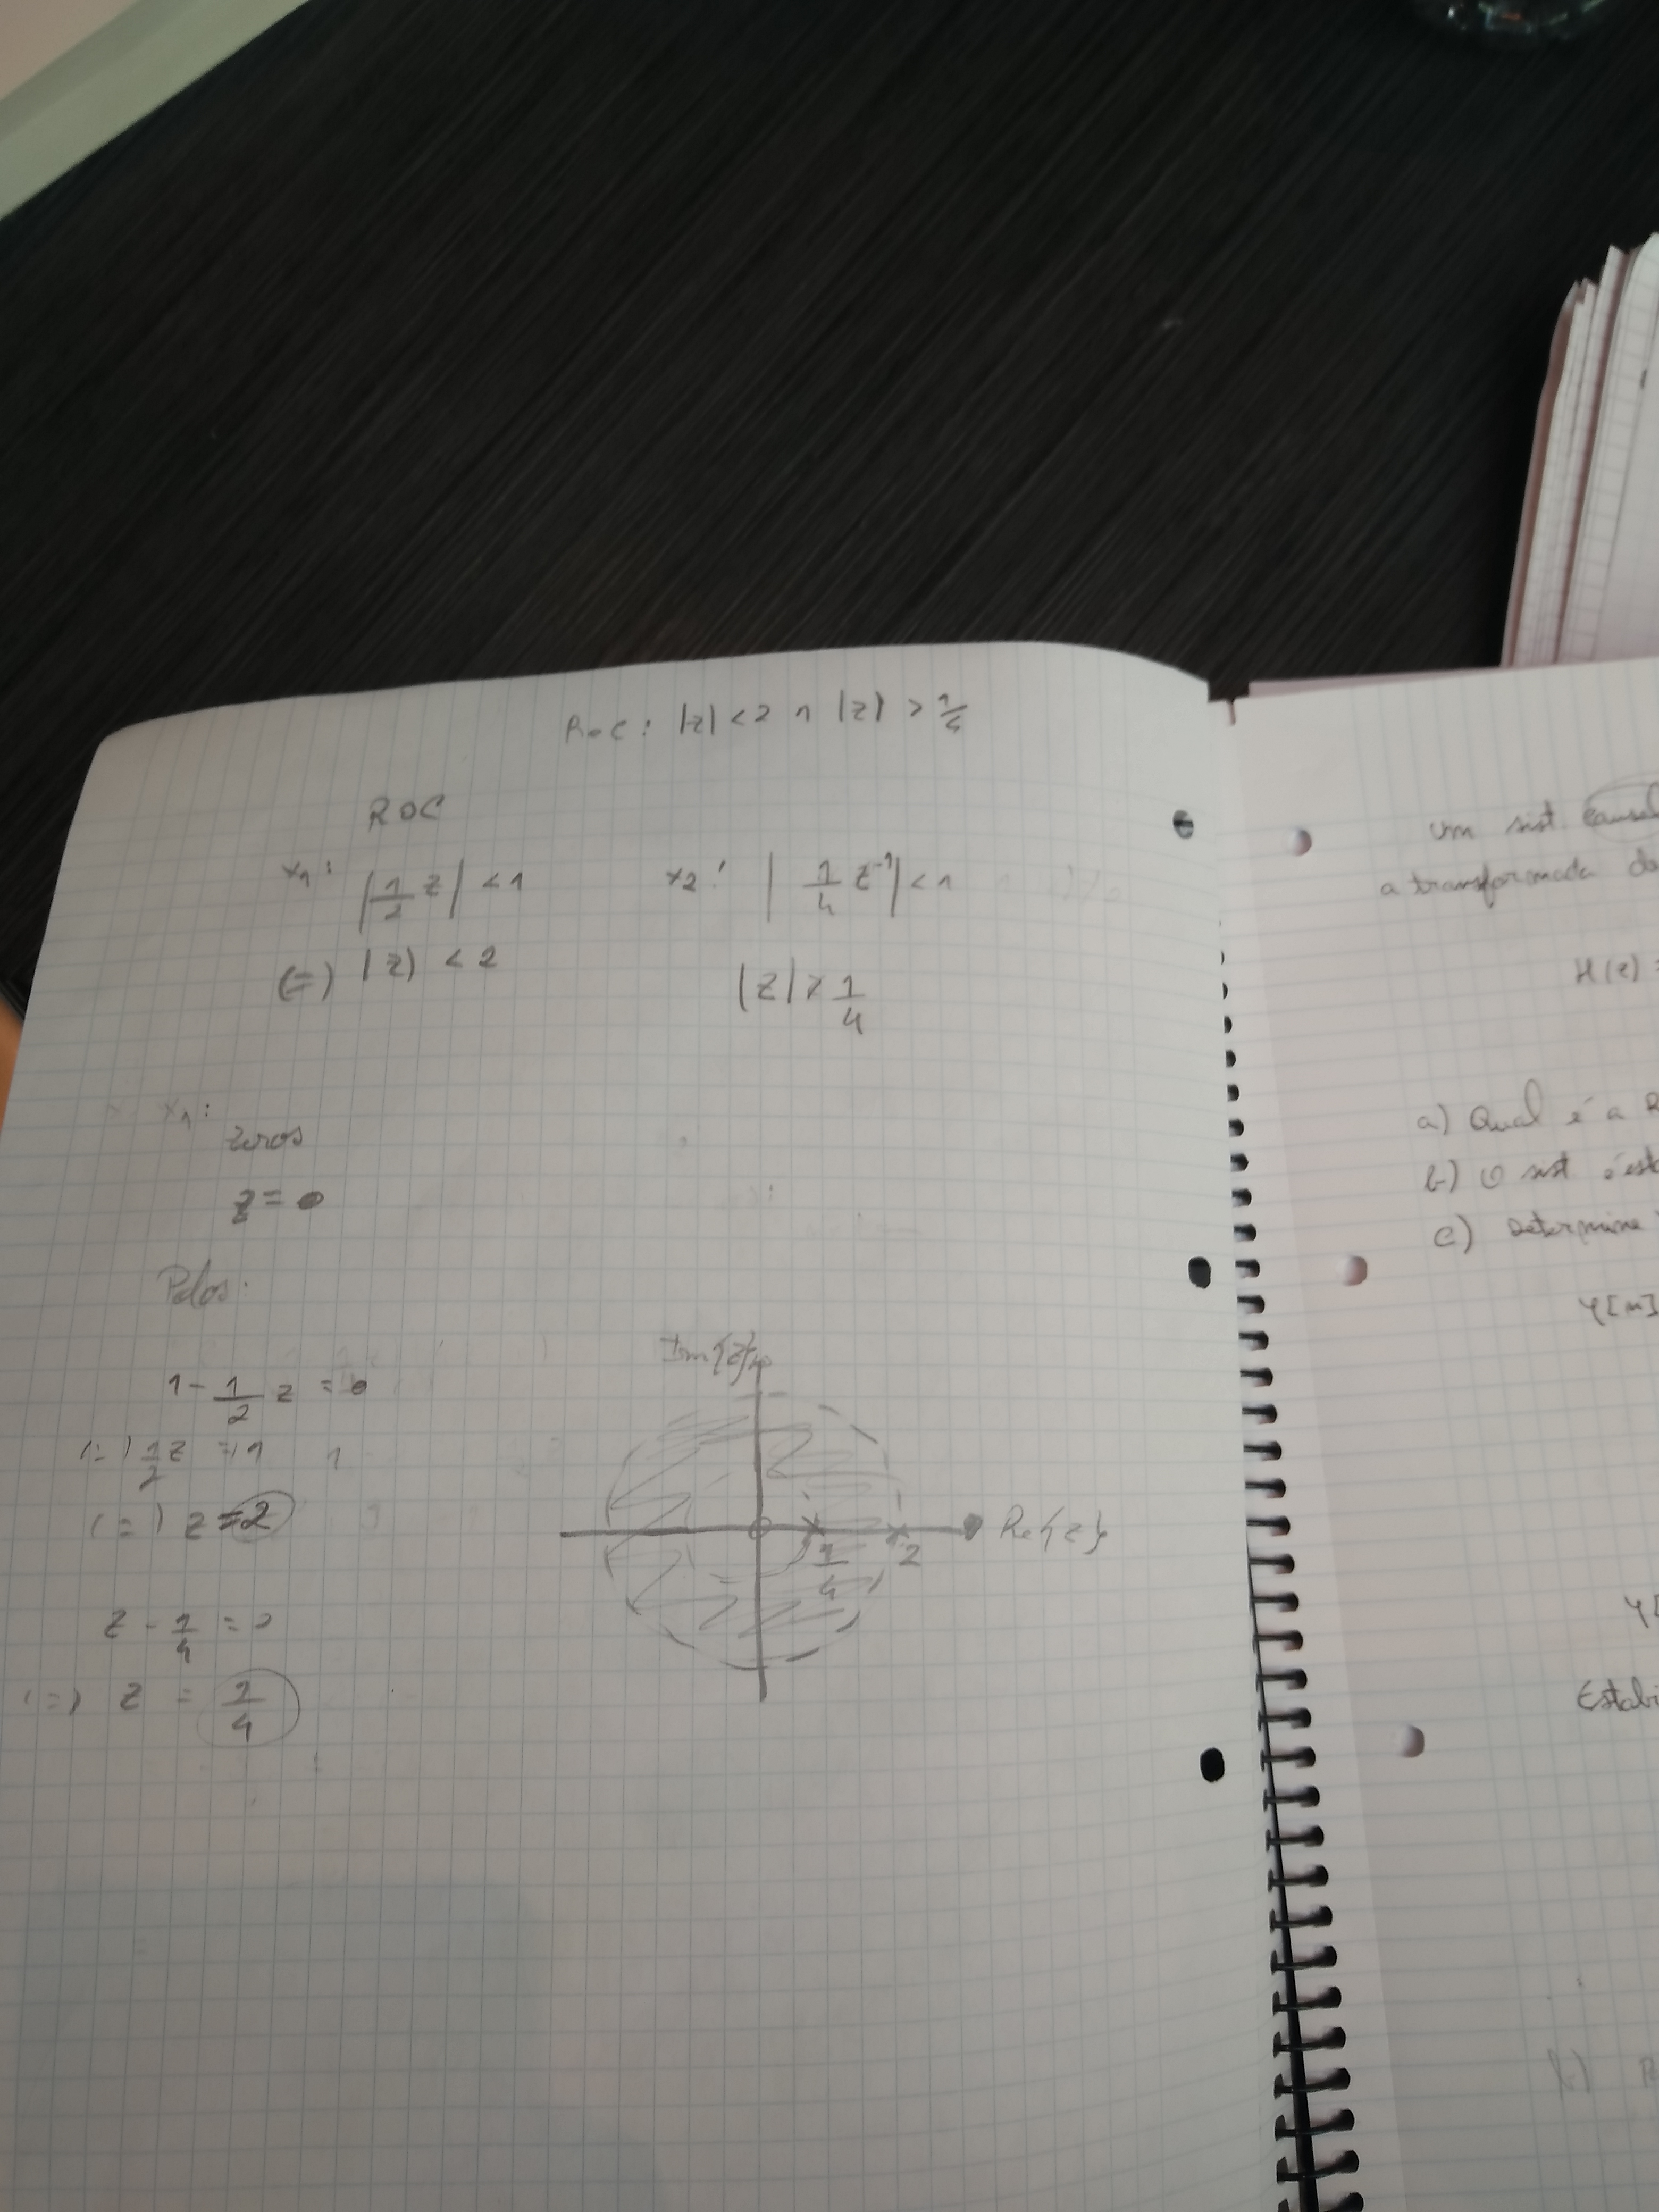 ROC: |z| < 2 ∩ |z| > 1/4
ROC
x1: |1/2 z| < 1
(=) |z| < 2
x2: |1/4 z^-1| < 1
|z| > 1/4
x1:
zeros
z = 0
Polos:
1 - 1/2 z = 0
(=) 1/2 z = 1
(=) z = 2
z - 1/4 = 0
(=) z = 1/4
Im{z}
Re{z}
1/4
2
Um sist causal
a transformada da
H(z) =
a) Qual é a R
b) O sist é est
c) Determine
y[n]
y[
Estabi
b)